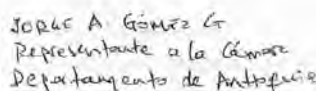 JORGE A. GÓMEZ G
Representante a la Cámara
Departamento de Antioquia